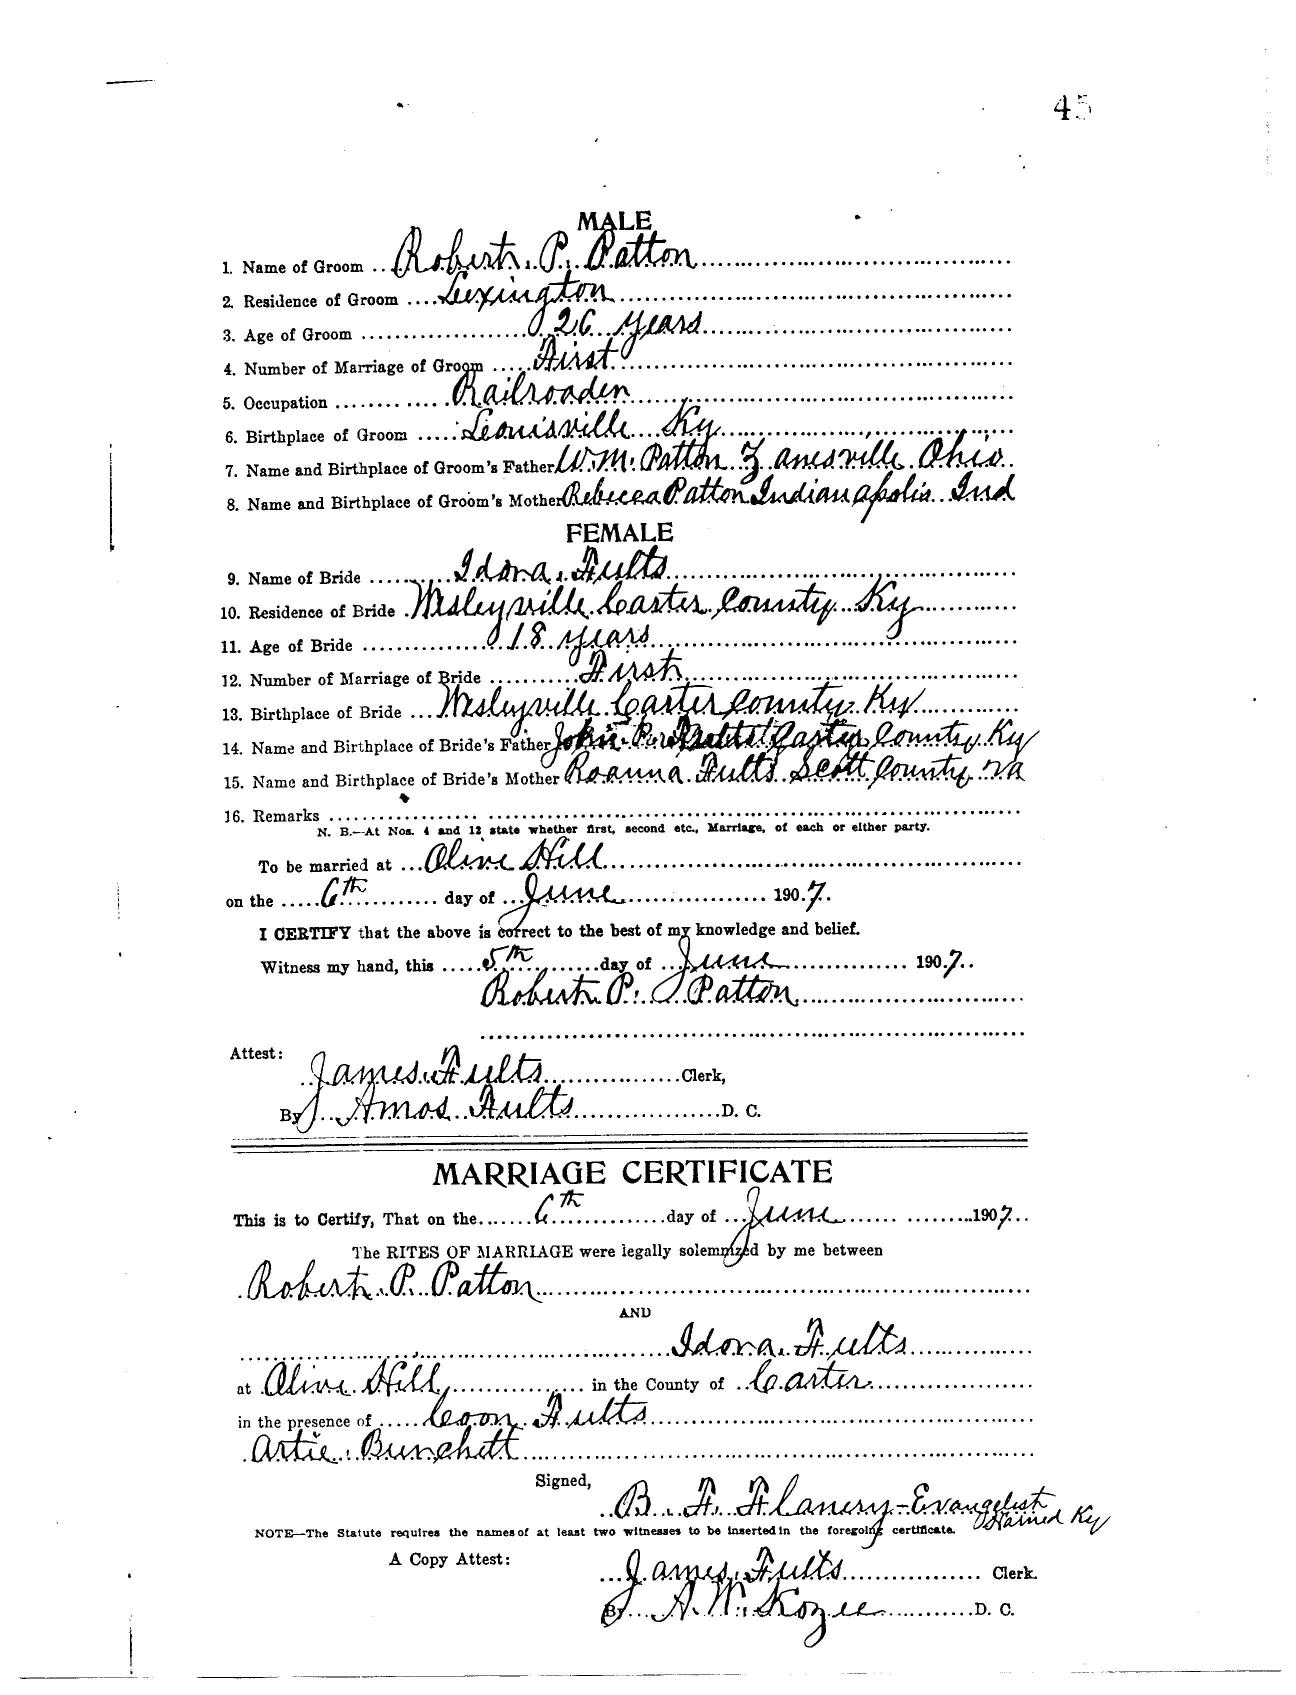 45
MALE
1. Name of Groom Robert. P. Patton
2. Residence of Groom Lexington
3. Age of Groom 26 years
4. Number of Marriage of Groom First
5. Occupation Railroader
6. Birthplace of Groom Louisville Ky
7. Name and Birthplace of Groom's Father W.M. Patton Zanesville Ohio
8. Name and Birthplace of Groom's Mother Rebecca Patton Indianapolis Ind
FEMALE
9. Name of Bride Idora Fults
10. Residence of Bride Wesleyville Carter County Ky
11. Age of Bride 18 years
12. Number of Marriage of Bride First
13. Birthplace of Bride Wesleyville Carter County Ky
14. Name and Birthplace of Bride's Father John Fults Carter County Ky
15. Name and Birthplace of Bride's Mother Roanna Fults Scott County Va
16. Remarks
N. B.—At Nos. 4 and 12 state whether first, second etc., Marriage, of each or either party.
To be married at Olive Hill
on the 6th day of June 1907.
I CERTIFY that the above is correct to the best of my knowledge and belief.
Witness my hand, this 5th day of June 1907.
Robert P. Patton
Attest:
James Fults Clerk,
By Amos Fults D. C.
MARRIAGE CERTIFICATE
This is to Certify, That on the 6th day of June 1907
The RITES OF MARRIAGE were legally solemnized by me between
Robert P. Patton
AND
Idora Fults
at Olive Hill in the County of Carter
in the presence of Coon Fults
Artie Burchett
Signed,
B. F. Flanery - Evangelist
Ordained Ky
NOTE—The Statute requires the names of at least two witnesses to be inserted in the foregoing certificate.
A Copy Attest:
James Fults Clerk.
By A. W. Kozee D. C.